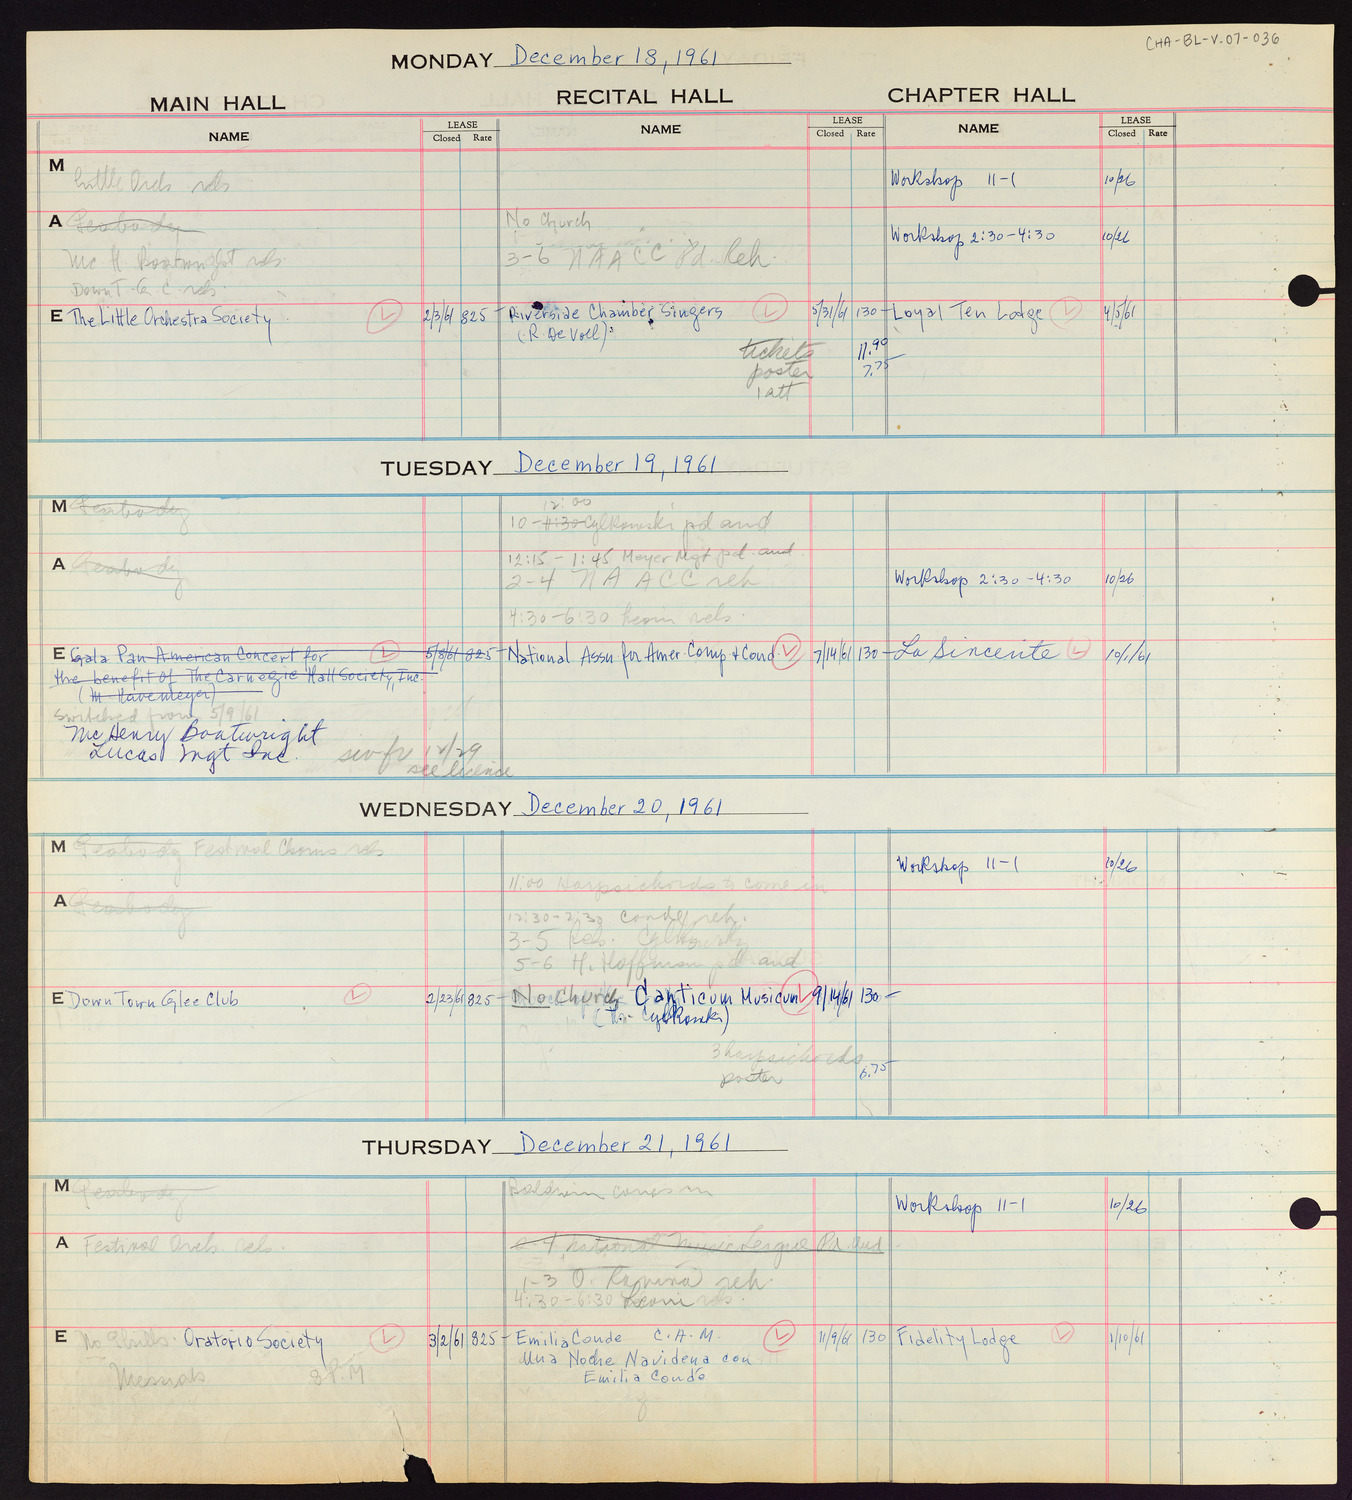 CHA-BL-V.07-036
MONDAY December 18, 1961
MAIN HALL RECITAL HALL CHAPTER HALL
NAME LEASE Closed Rate NAME LEASE Closed Rate NAME LEASE Closed Rate
M
Little Orch reh
Workshop 11-1 10/26
A
Peabody
No Church
Workshop 2:30-4:30 10/26
Mc H. Boatwright reh.
3-6 NAACC Pd. Reh.
Down T. G. C. reh.
E The Little Orchestra Society 2/3/61 825- Riverside Chamber Singers 5/31/61 130- Loyal Ten Lodge 4/5/61
(R. De Voll)
tickets 11.90
poster 7.75
1 att
TUESDAY December 19, 1961
M Peabody
12:00
10-11:30 Cylkowski pd and
A Peabody
12:15-1:45 Meyer Mgt pd and
2-4 NAACC reh
Workshop 2:30-4:30 10/26
4:30-6:30 reh.
E Gala Pan American Concert for 5/8/61 825- National Assn for Amer. Comp + Cond 7/14/61 130- La Sincerite 10/1/61
the benefit of The Carnegie Hall Society, Inc.
(M. Havemeyer)
Switched from 5/9/61
McHenry Boatwright
Lucas Mgt Inc.
12/29
see license
WEDNESDAY December 20, 1961
M Peabody Festival Chorus reh
Workshop 11-1 10/26
11:00 Harpsichords to come in
A Peabody
12:30-2:30 Conde reh.
3-5 Reh. Cylkowski
5-6 H. Hoffman pd and
E Down Town Glee Club 2/23/61 825- No Church Canticum Musicum 9/14/61 130-
Cylkowski)
3 harpsichords
poster 6.75
THURSDAY December 21, 1961
M Peabody
Baldwin comes in
Workshop 11-1 10/26
A Festival Orch. reh.
National Music League Pd. Aud
1-3 O. reh.
4:30-6:30 reh.
E No Thrills. Oratorio Society 3/2/61 825- Emilia Conde C.A.M. 11/9/61 130 Fidelity Lodge 1/10/61
Messiah 8 P.M
Una Noche Navidena con
Emilia Conde